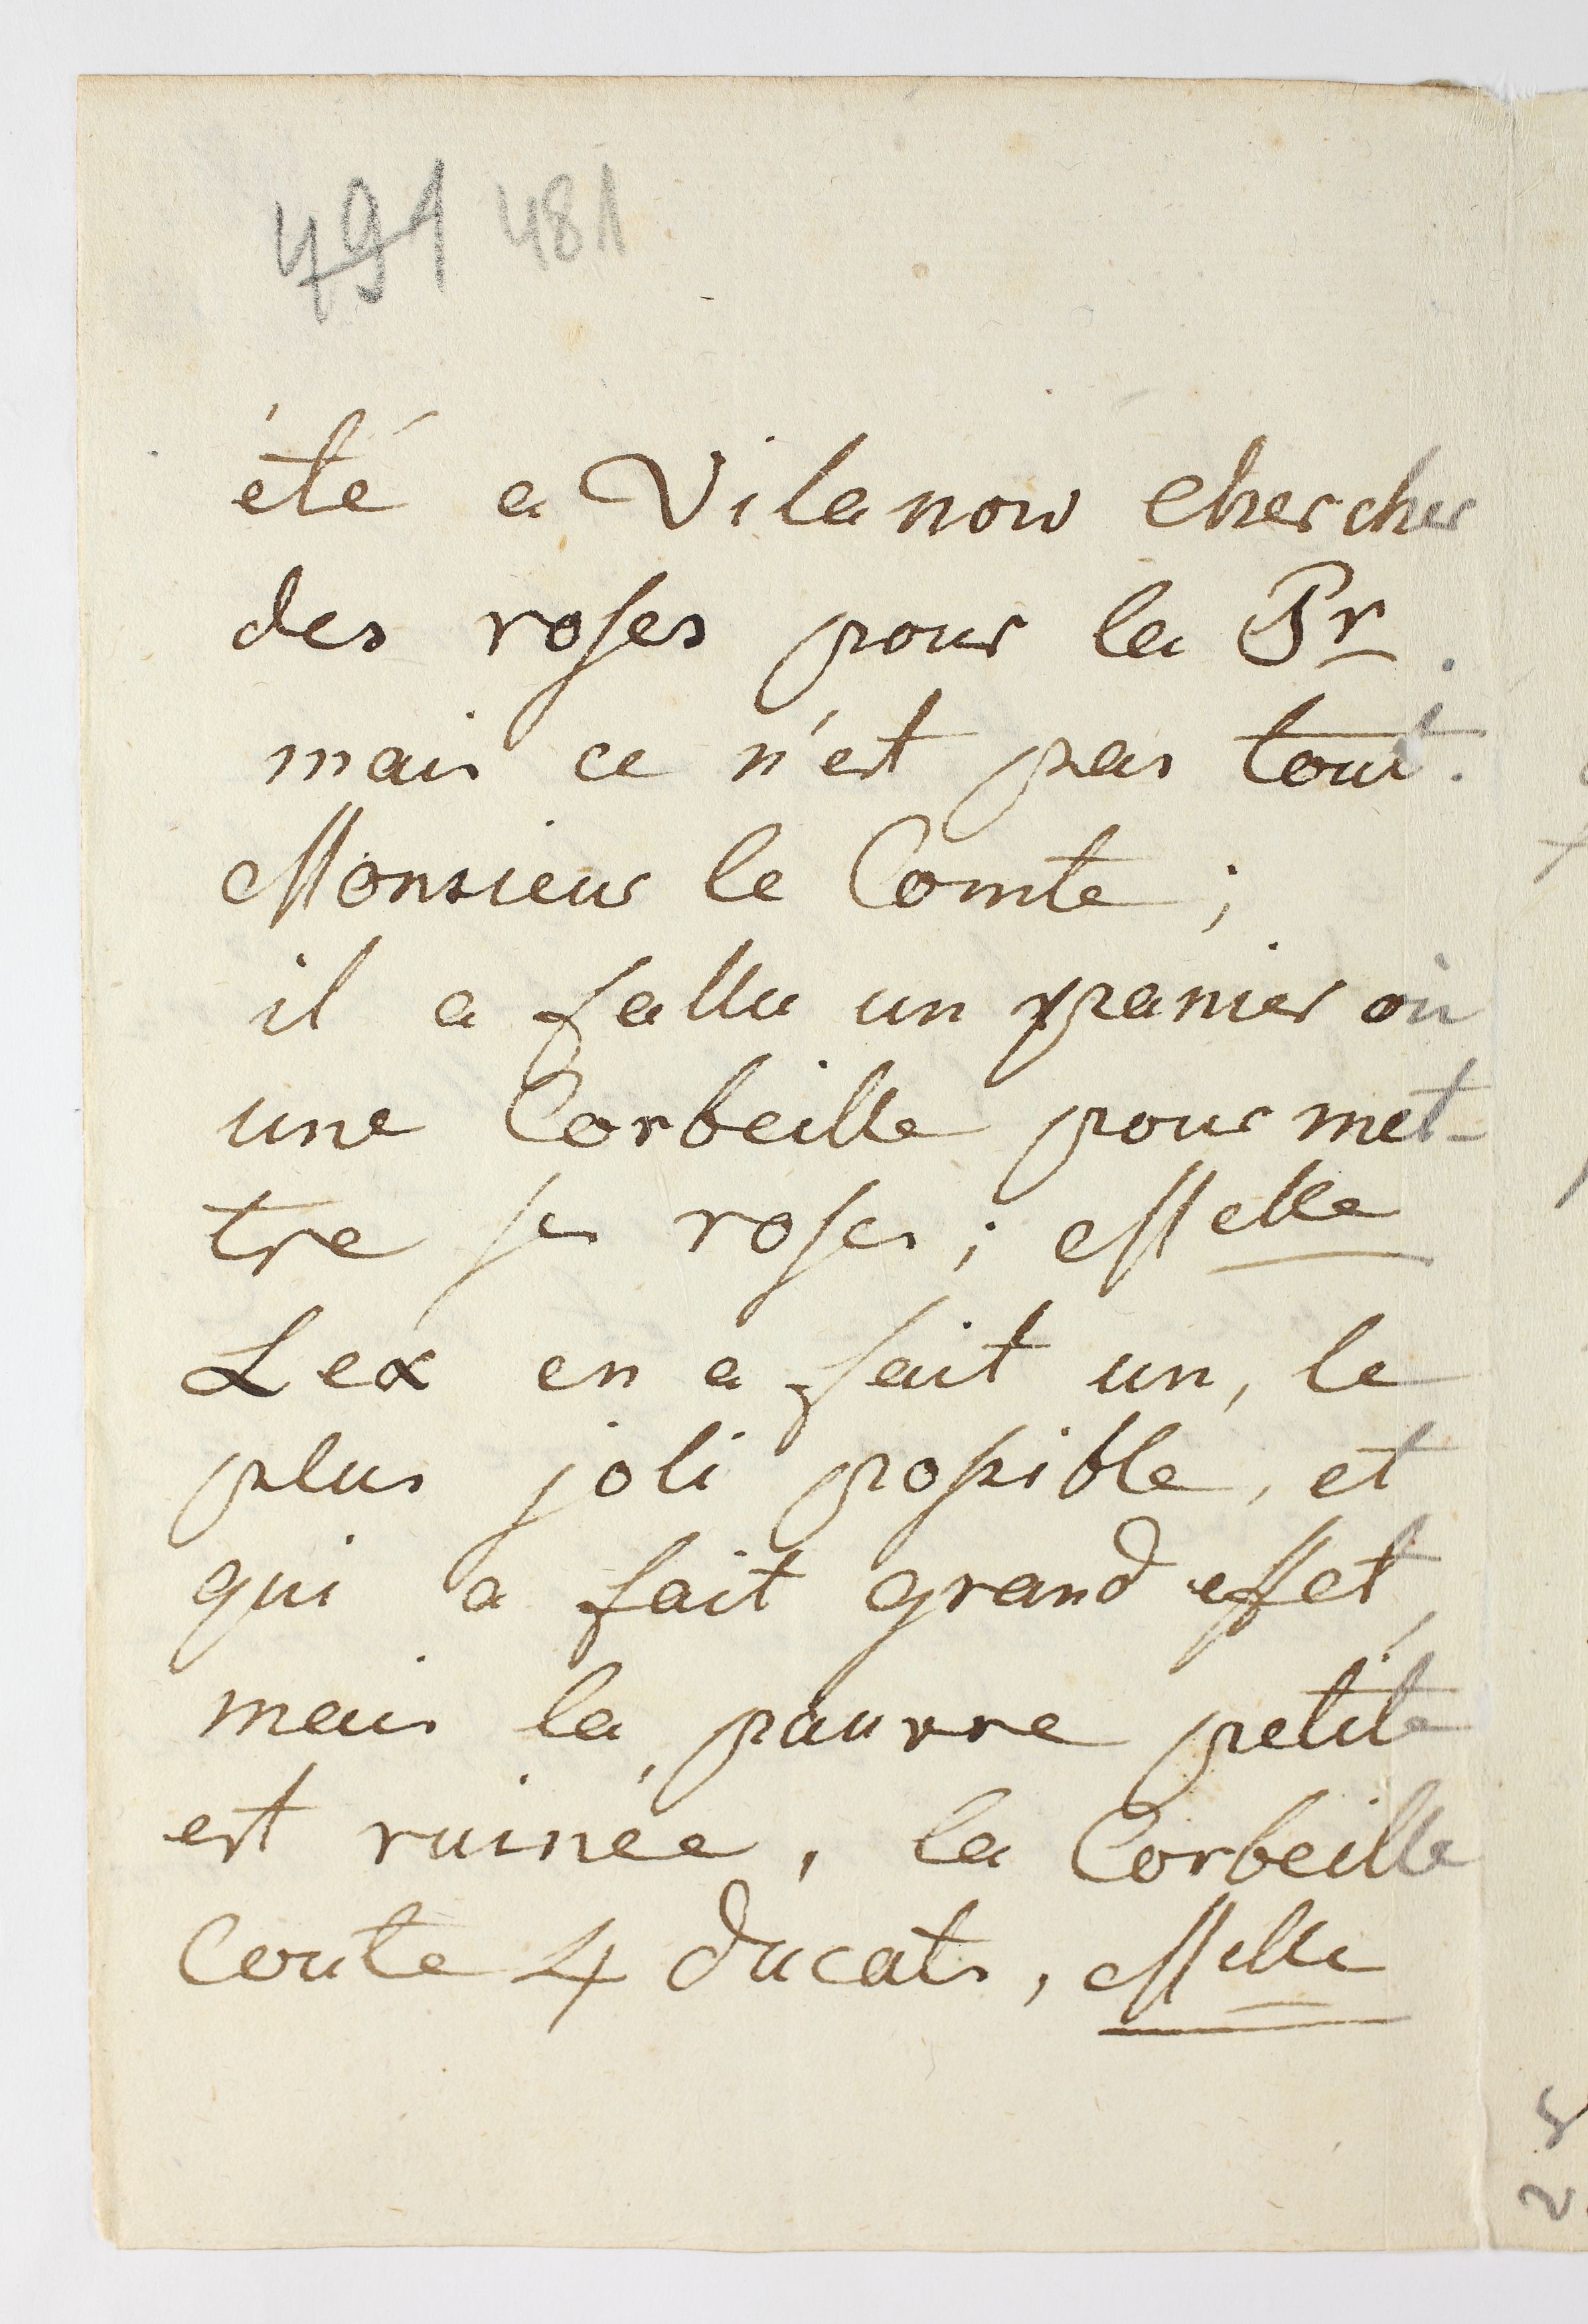 491 481
été a Vilanow chercher
des roses pour la Pr.
mais ce n'est pas tout.
Monsieur le Comte ;
il a fallu un panier où
une Corbeille pour met-
tre ses roses ; Melle
Lex en a fait un, le
plus joli possible, et
qui a fait grand effet,
mais la pauvre petite
est ruinée, la Corbeille
Coute 4 ducats, Melle